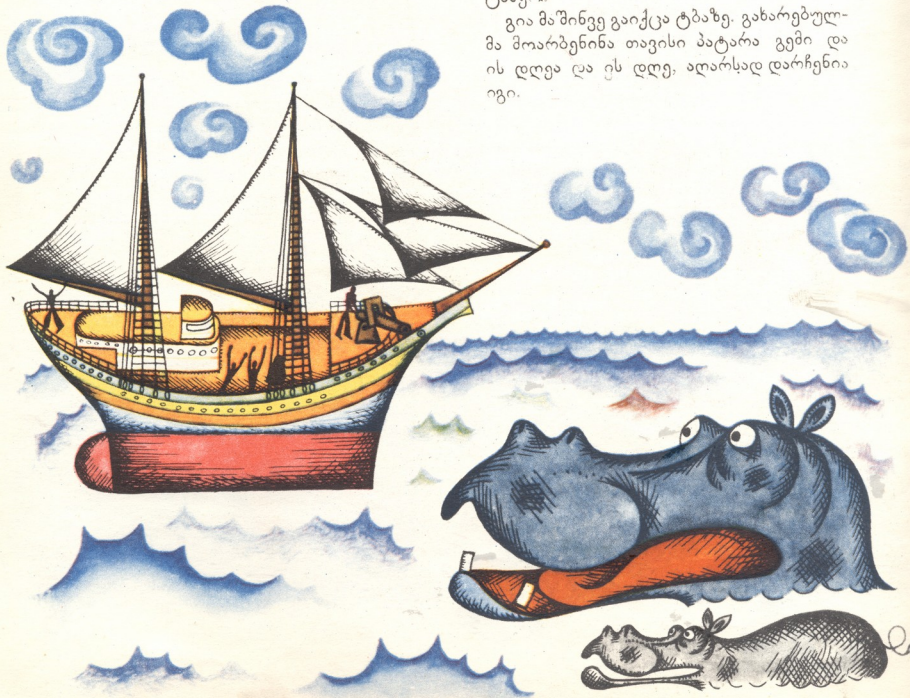 გია მაშინვე გაიქცა ტბაზე. გახარებულ-
მა მოარბენინა თავისი პატარა გემი და
ის დღეა და ეს დღე, აღარსად დარჩენია
იგი.